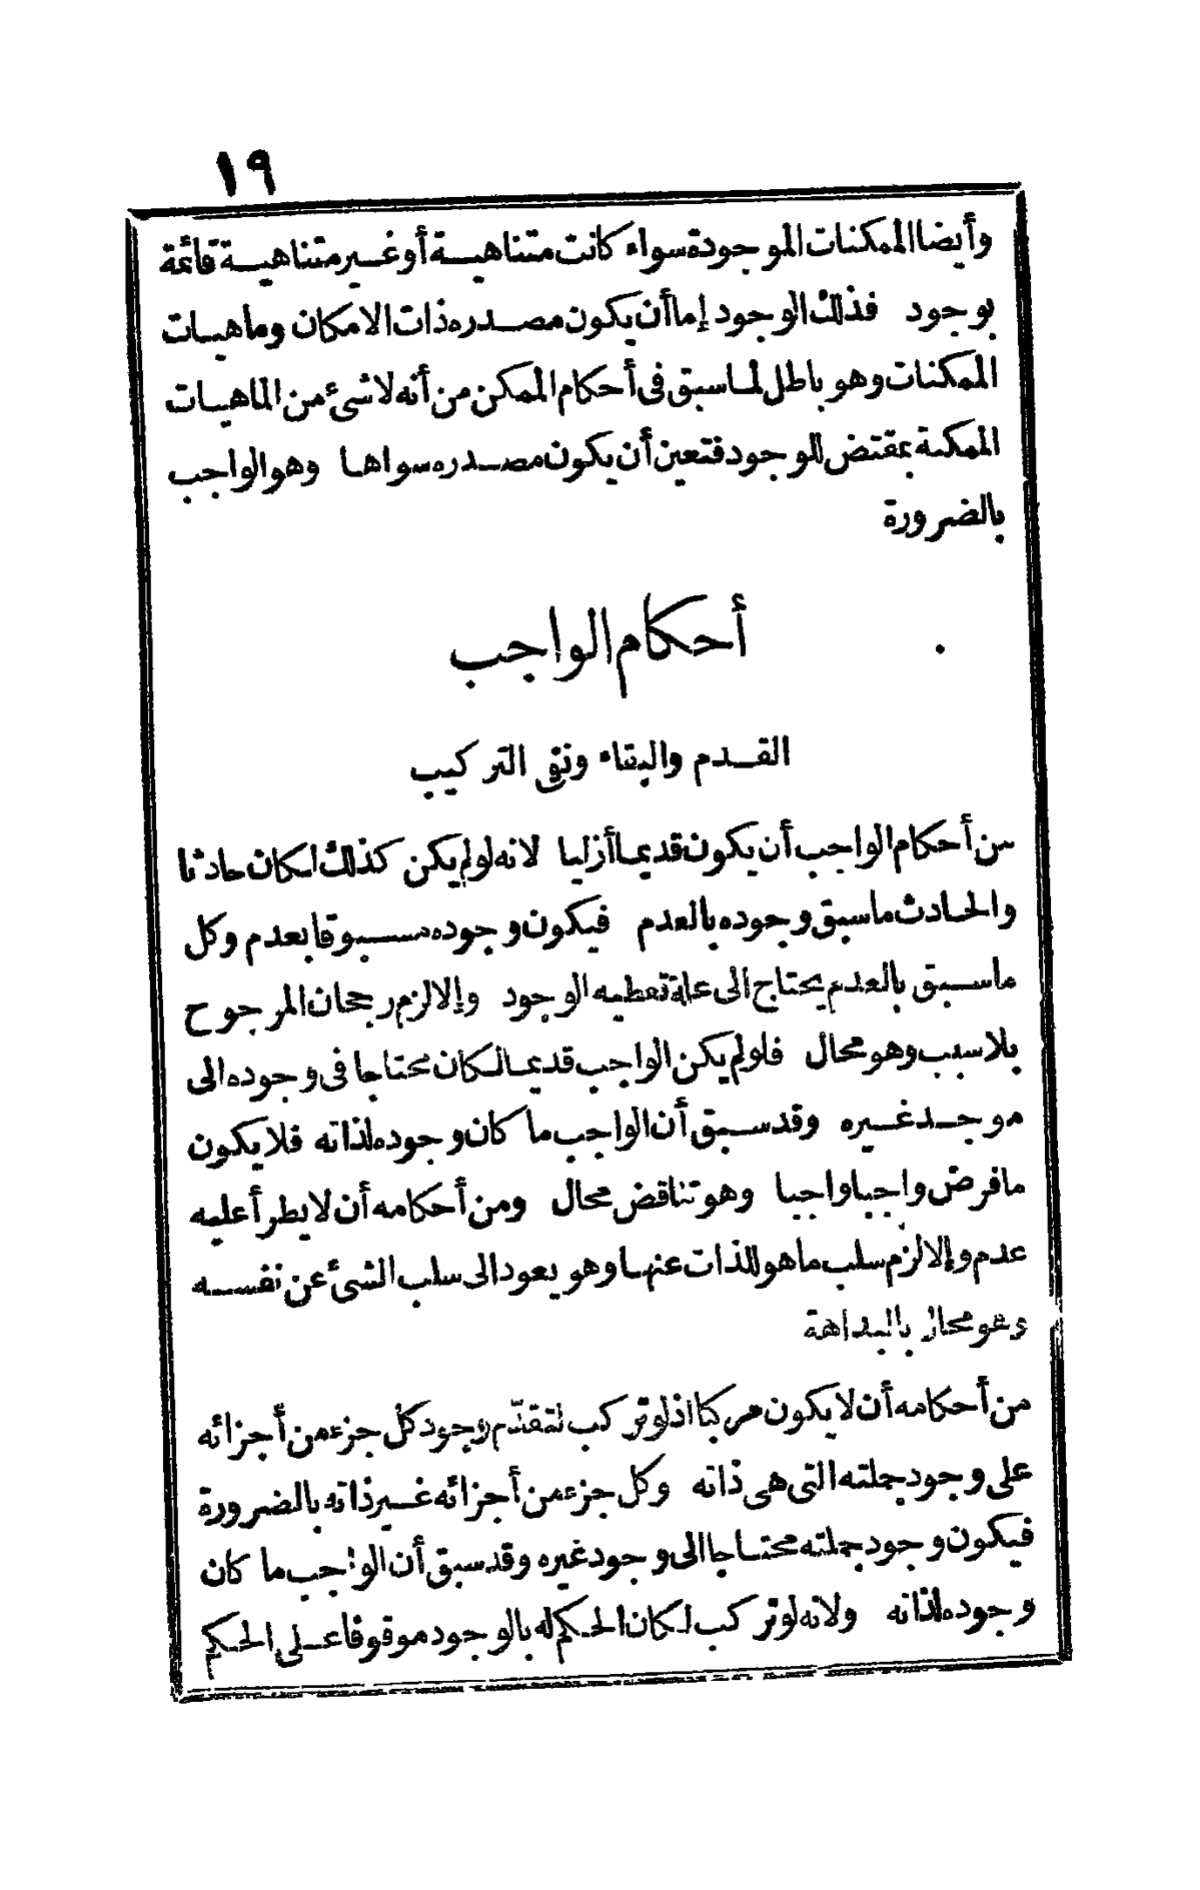 ١٩
وأيضا الممكنات الموجودة سواء كانت متناهية أو غير متناهية قائمة
بوجود فذلك الوجود إما أن يكون مصدره ذات الامكان وماهيات
الممكنات وهو باطل لما سبق فى أحكام الممكن من أنه لا شئ من الماهيات
الممكنة بمقتض للوجود فتعين أن يكون مصدره سواها وهو الواجب
بالضرورة
أحكام الواجب
القدم والبقاء ونفى التركيب
من أحكام الواجب أن يكون قديما أزليا لانه لو لم يكن كذلك لكان حادثا
والحادث ما سبق وجوده بالعدم فيكون وجوده مسبوقا بعدم وكل
ما سبق بالعدم يحتاج الى علة تعطيه الوجود وإلا لزم رجحان المرجوح
بلا سبب وهو محال فلو لم يكن الواجب قديما لكان محتاجا فى وجوده الى
موجد غيره وقد سبق أن الواجب ما كان وجوده لذاته فلا يكون
ما فرض واجبا واجبا وهو تناقض محال ومن أحكامه أن لا يطرأ عليه
عدم وإلا لزم سلب ما هو للذات عنها وهو يعود الى سلب الشئ عن نفسه
وهو محال بالبداهة
من أحكامه أن لا يكون مركبا اذ لو تركب لتقدّم وجود كل جزء من أجزائه
على وجود جملته التى هى ذاته وكل جزء من أجزائه غير ذاته بالضرورة
فيكون وجود جملته محتاجا الى وجود غيره وقد سبق أن الواجب ما كان
وجوده لذاته ولانه لو تركب لكان الحكم له بالوجود موقوفا على الحكم